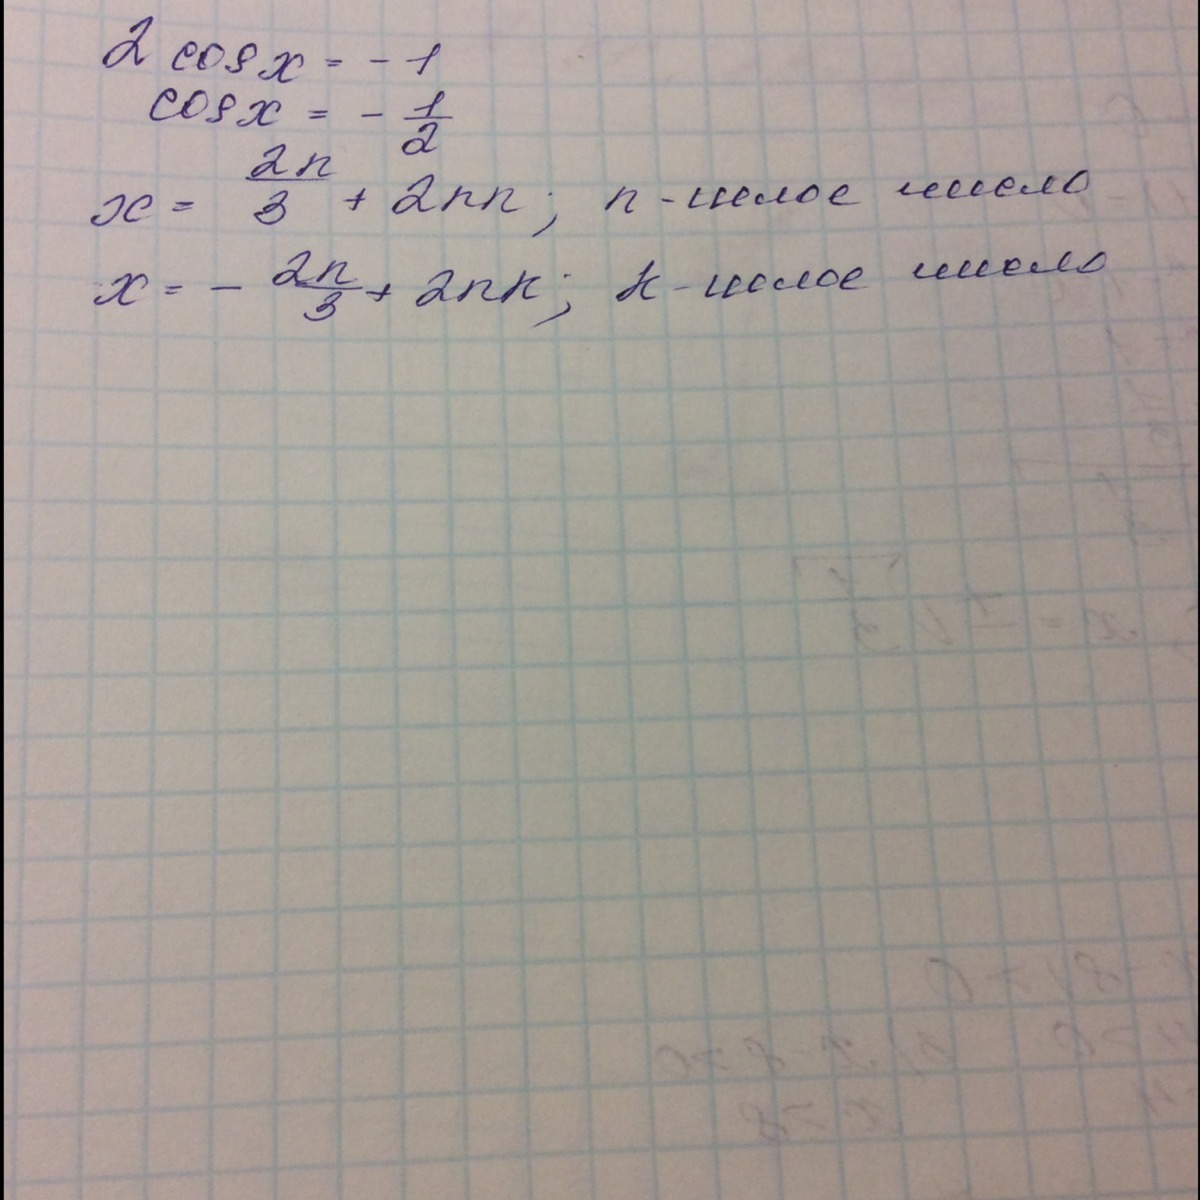 2 cos x = - 1
cos x = - 1/2
x = 2π/3 + 2πn; n - целое число
x = - 2π/3 + 2πk; k - целое число